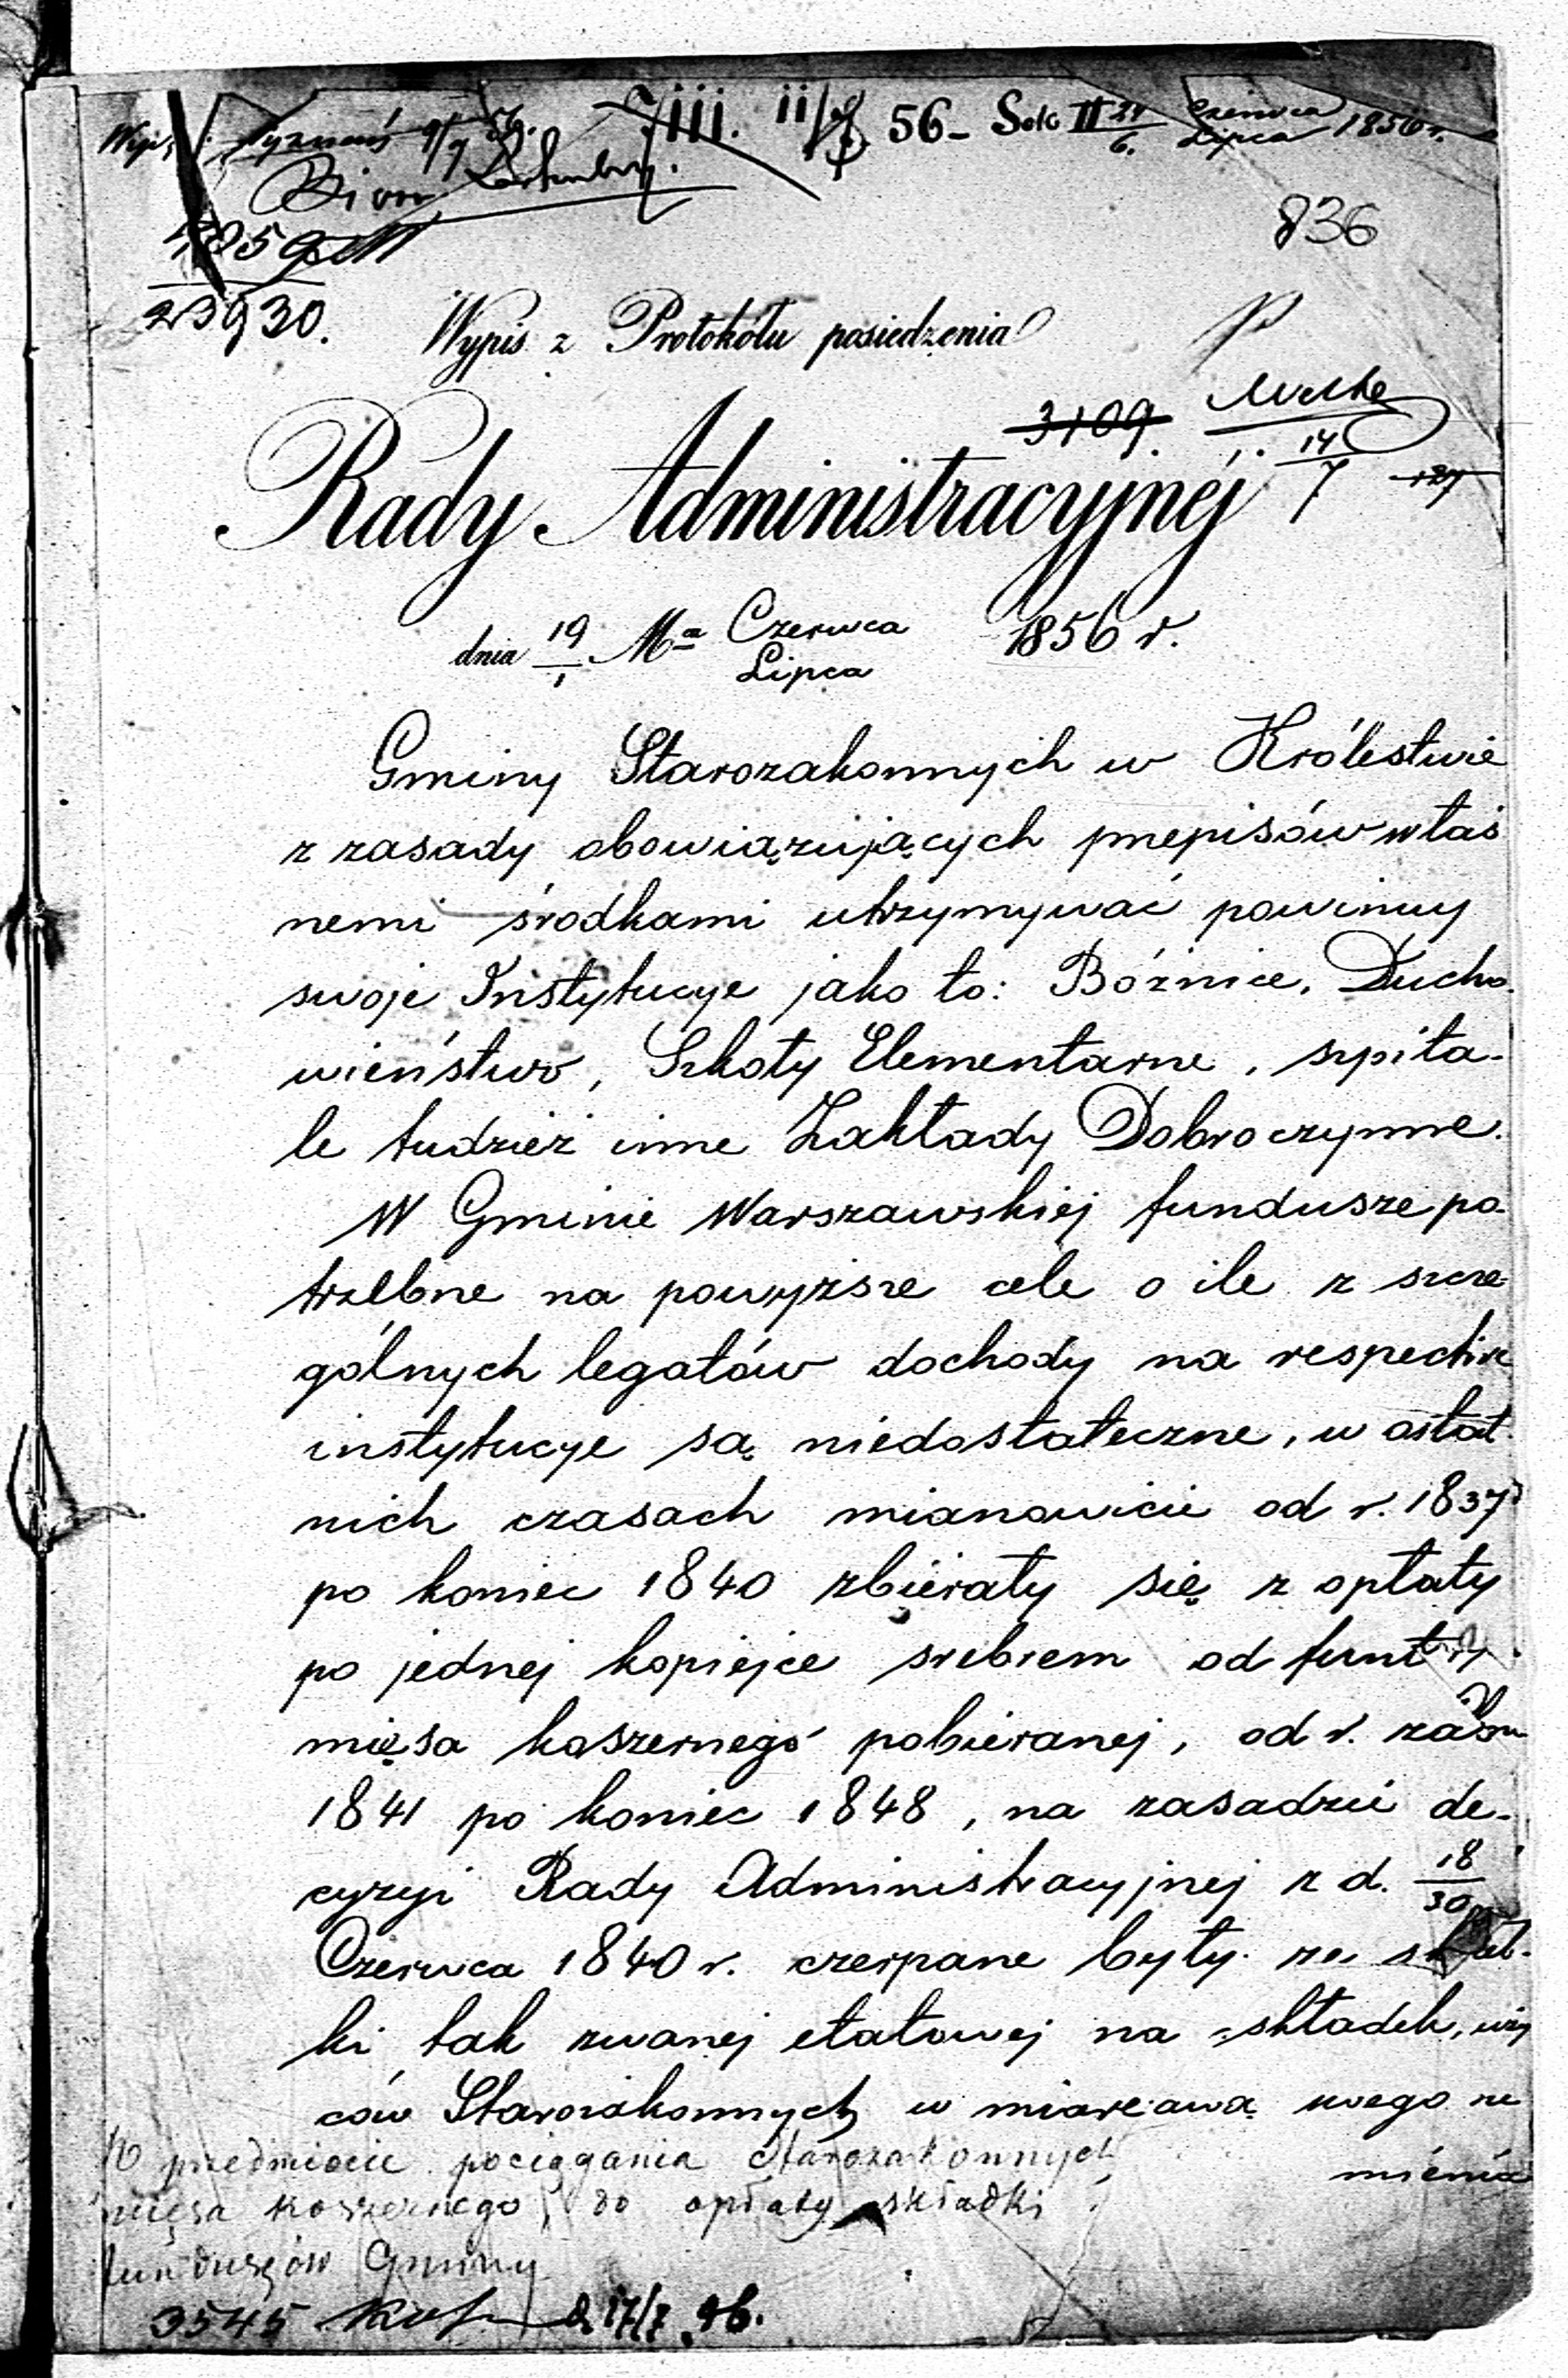 56 - Sek II 24/6. Czerwca/Lipca 1856 r.
836
23930.
Wypis z Protokółu posiedzenia
3109.
14/7
Rady Administracyjnéj
dnia 19/1 Mca Czerwca/Lipca 1856 r.
Gminy Starozakonnych w Królestwie
z zasady obowiązujących przepisów włas
nemi środkami utrzymywać powinny
swoje Instytucye jako to: Bóźnice, Ducho-
wieństwo, Szkoły Elementarne, szpita-
le tudzież inne Zakłady Dobroczynne.
W Gminie Warszawskiej fundusze po-
trzebne na powyższe cele o ile z szcze-
gólnych legatów dochody na respective
instytucye są niedostateczne, w ostat-
nich czasach mianowicie od r. 1837
po koniec 1840 zbierały się z opłaty
po jednej kopiejce srebrem od funta
mięsa koszernego pobieranej, od r. zaś
1841 po koniec 1848, na zasadzie de-
cyzyi Rady Administracyjnej z d. 18/30
Czerwca 1840 r. czerpane były ze
ki tak zwanej etatowej na składek,
ców Starozakonnych w miarę swego
mienia
W przedmiocie pociągania Starozakonnych
mięsa koszernego, do opłaty składki
funduszów Gminy
3545 d 17/7 56.